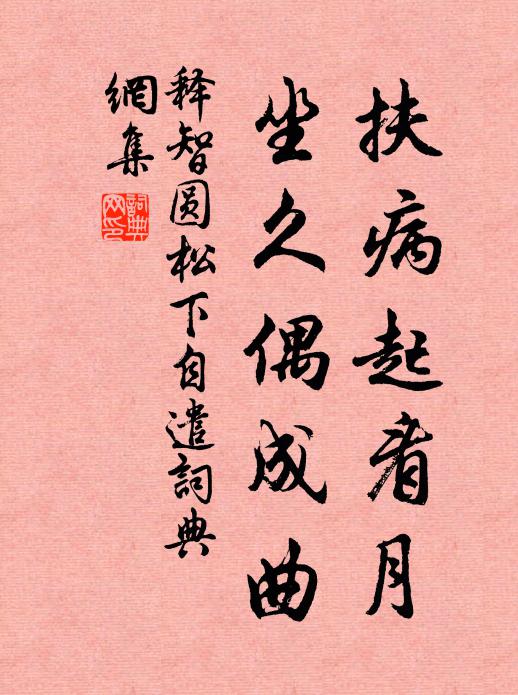 扶病起看月
坐久偶成曲
释智圆松下自遣詞典
網集
詞典
网印